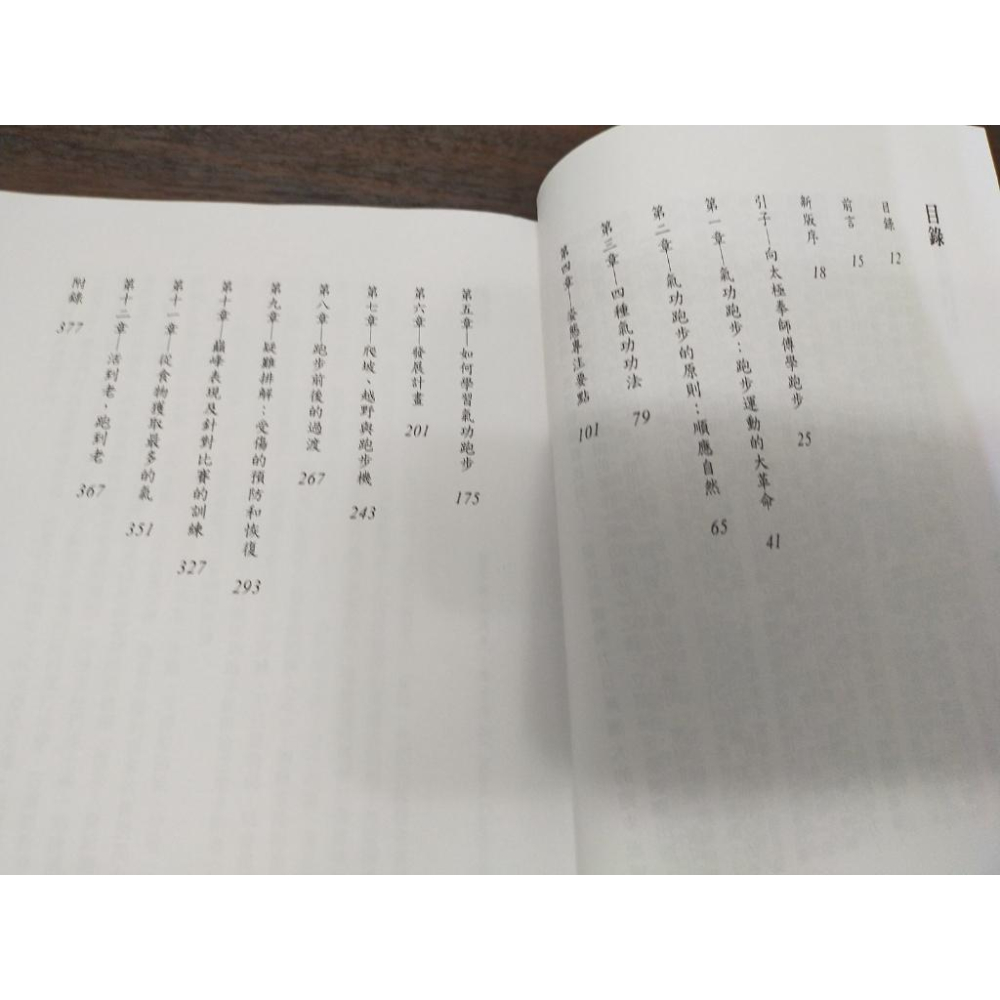 目錄
目錄 12
前言 15
新版序 18
引子—向太極拳師傅學跑步 25
第一章—氣功跑步：跑步運動的大革命 41
第二章—氣功跑步的原則：順應自然 65
第三章—四種氣功功法 79
第四章—姿態專注要點 101
第五章—如何學習氣功跑步 175
第六章—發展計畫 201
第七章—爬坡、越野與跑步機 243
第八章—跑步前後的過渡 267
第九章—疑難排解：受傷的預防和恢復 293
第十章—巔峰表現及針對比賽的訓練 327
第十一章—從食物獲取最多的氣 351
第十二章—活到老，跑到老 367
附錄 377